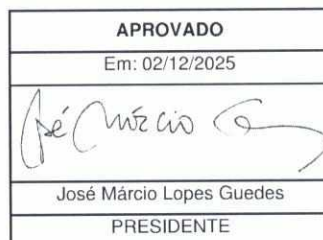 APROVADO
Em: 02/12/2025
José Márcio G
José Márcio Lopes Guedes
PRESIDENTE